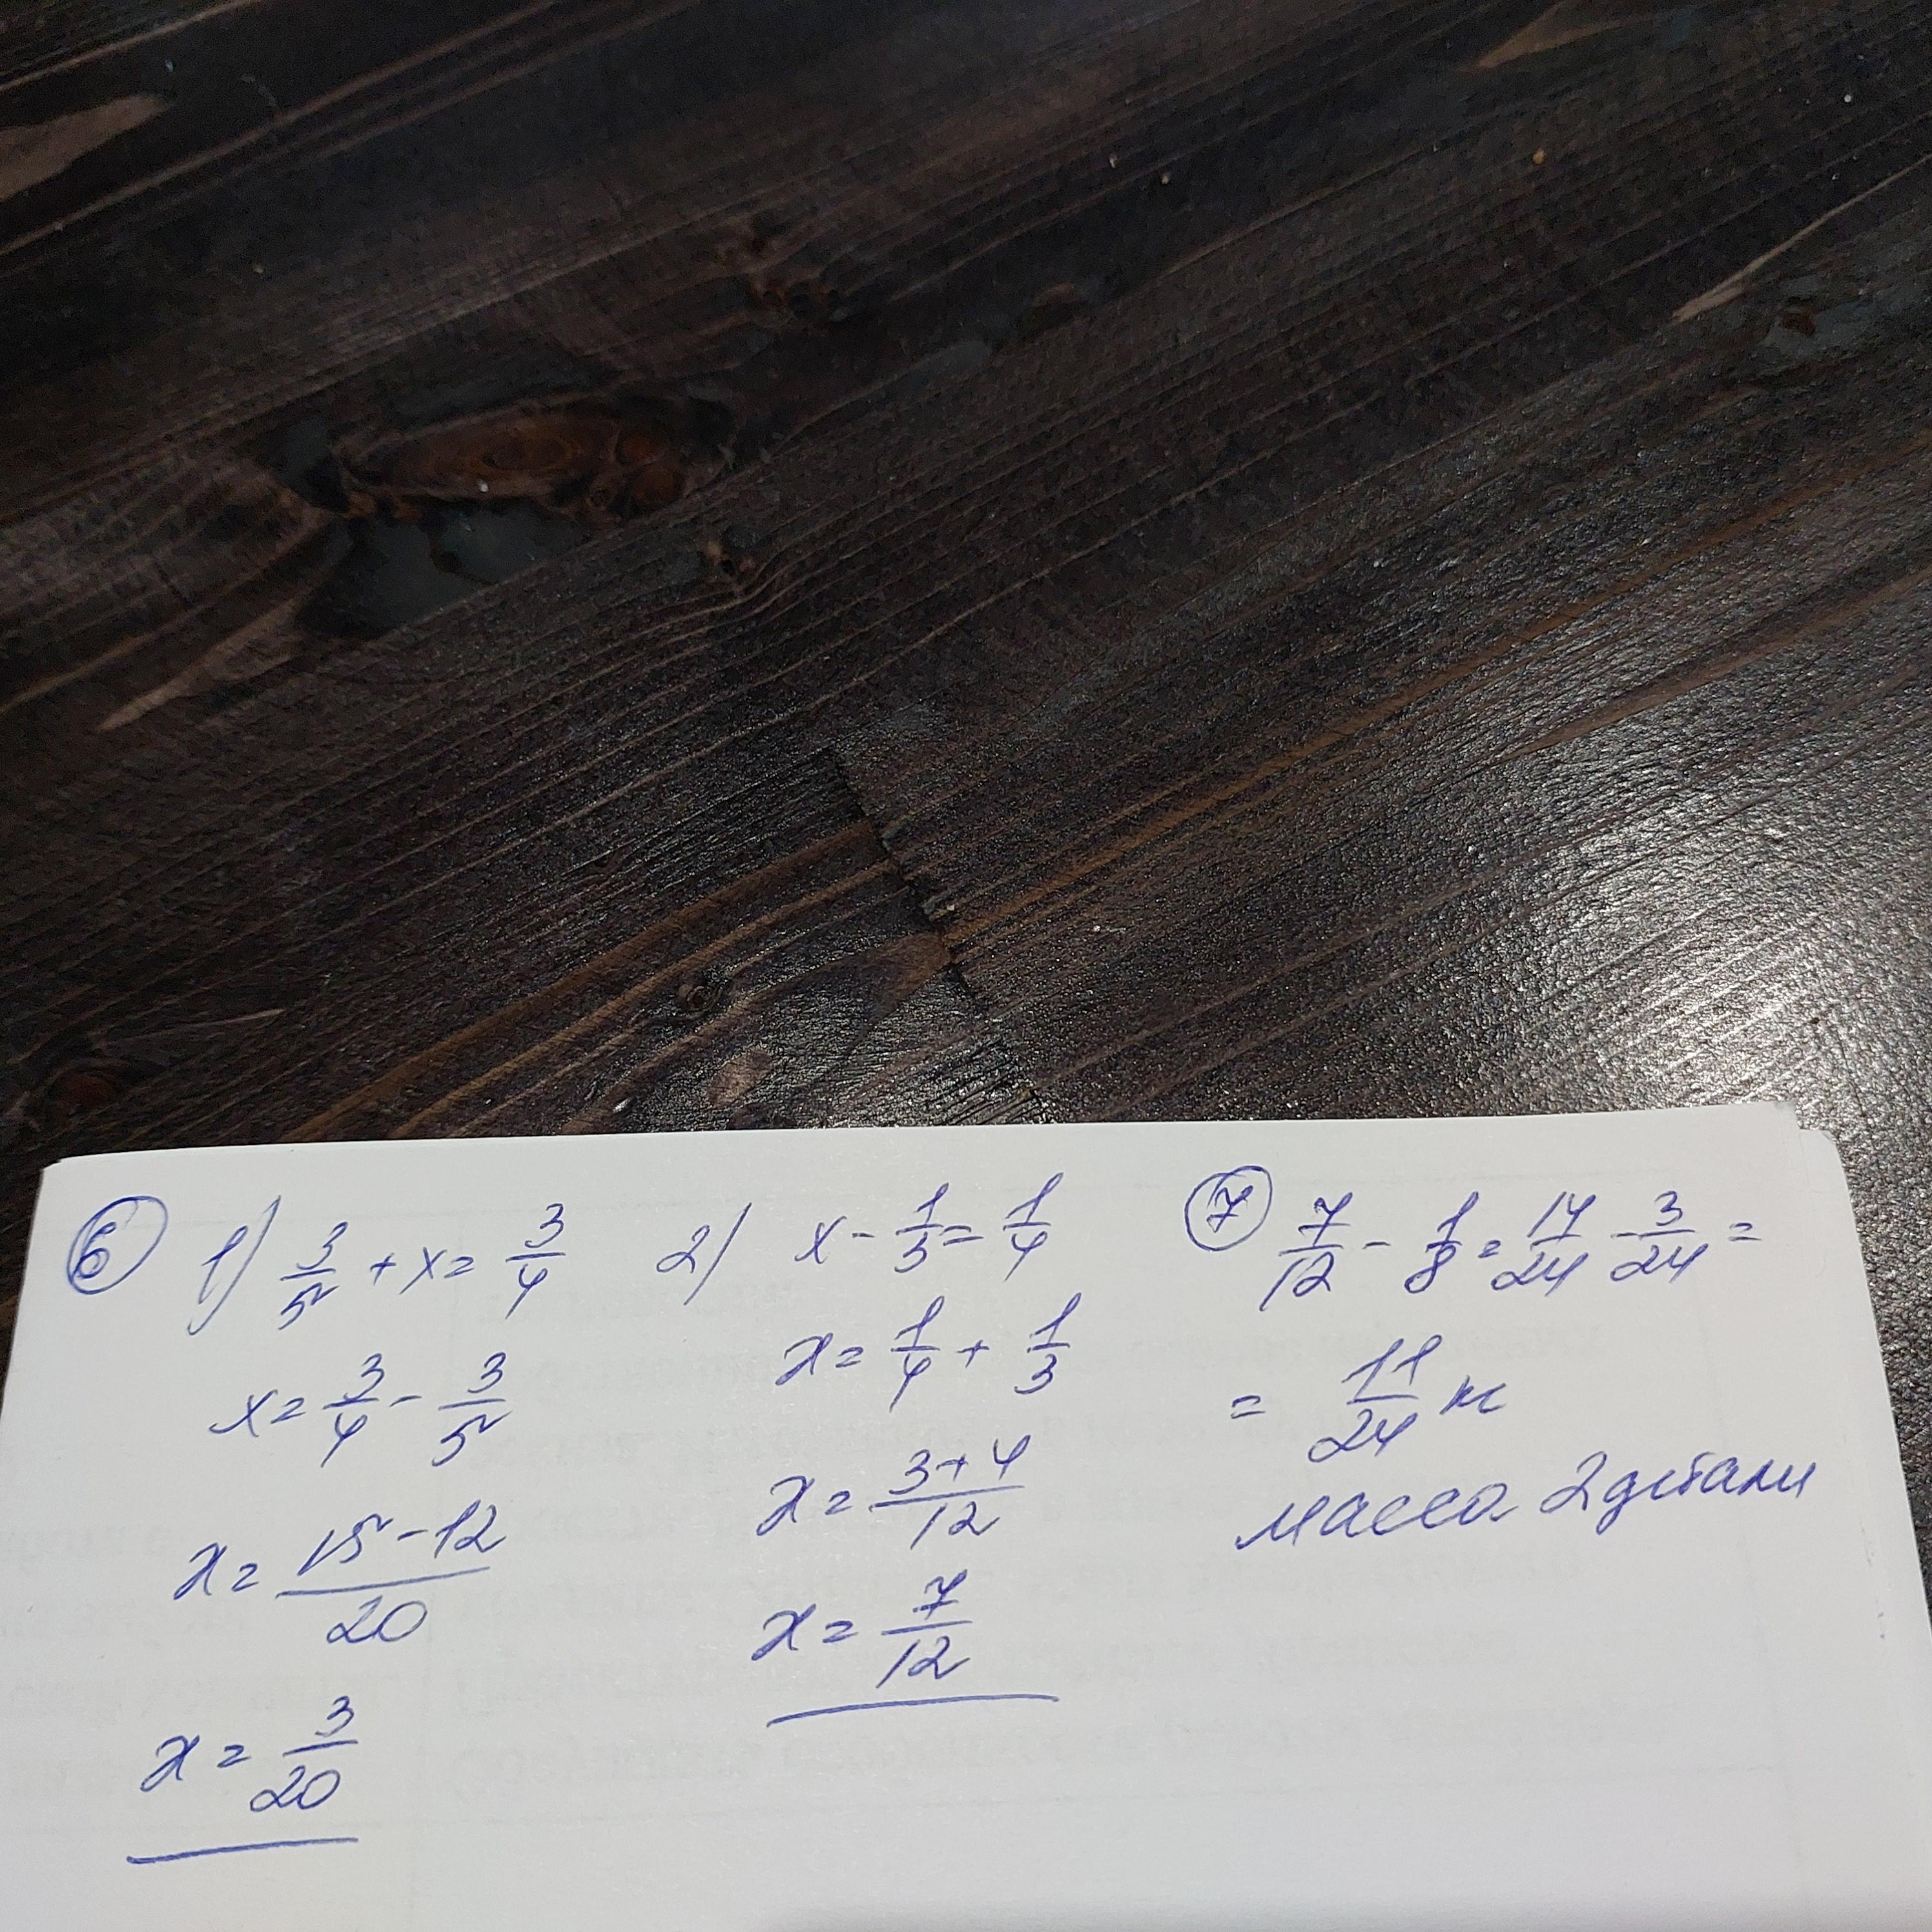 ⑥ 1) 3/5 + x = 3/4
x = 3/4 - 3/5
x = 15-12/20
x = 3/20
2) x - 1/3 = 1/4
x = 1/4 + 1/3
x = 3+4/12
x = 7/12
⑦ 7/12 - 1/8 = 14/24 - 3/24 =
= 11/24 кг
масса 2 детали